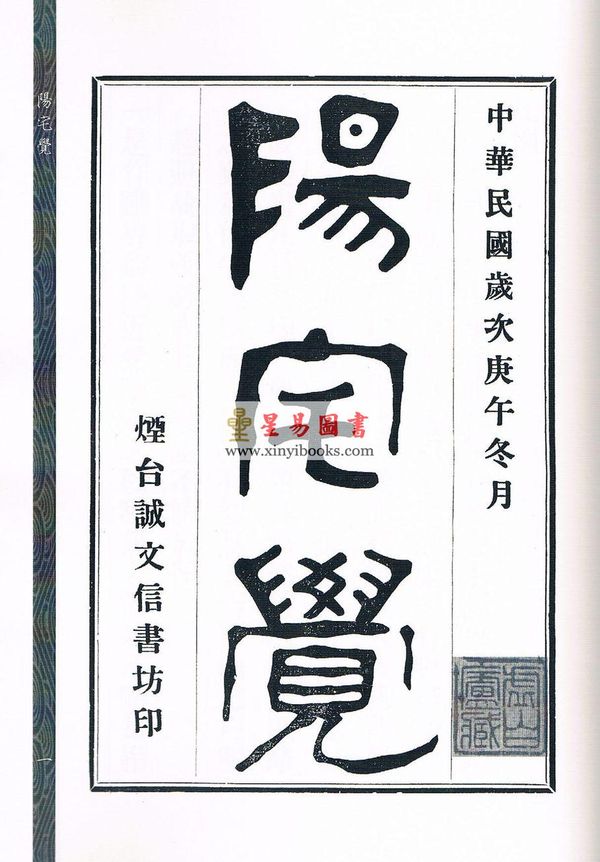 中華民國歲次庚午冬月
陽宅覺
煙台誠文信書坊印
虛白
廬藏
星易圖書
www.xinyibooks.com
陽宅覺
一